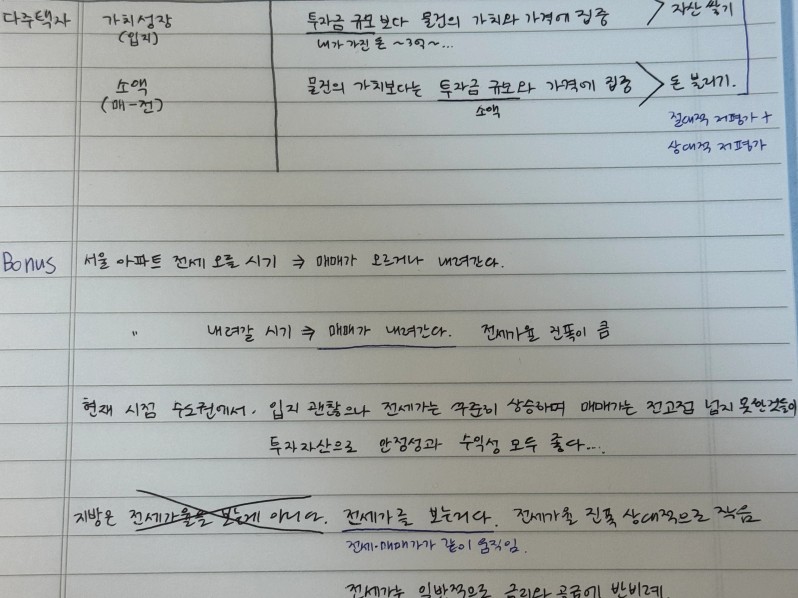 다주택자 가치성장 투자금 규모보다 물건의 가치와 가격에 집중 > 자산 쌓기
(입지) 내가 가진 돈 ~3억~...
소액 물건의 가치보다는 투자금 규모와 가격에 집중 > 돈 불리기.
(매-전) 소액
절대적 저평가 +
상대적 저평가
Bonus 서울 아파트 전세 오를 시기 ⇒ 매매가 오르거나 내려간다.
〃 내려갈 시기 ⇒ 매매가 내려간다. 전세가율 진폭이 큼
현재 시점 수도권에서. 입지 괜찮으나 전세가는 꾸준히 상승하며 매매가는 전고점 넘지 못한것들이
투자자산으로 안정성과 수익성 모두 좋다....
지방은 전세가율을 보는게 아니다. 전세가를 보는거다. 전세가율 진폭 상대적으로 작음
전세·매매가가 같이 움직임.
전세가는 일반적으로 금리와 공급에 반비례.